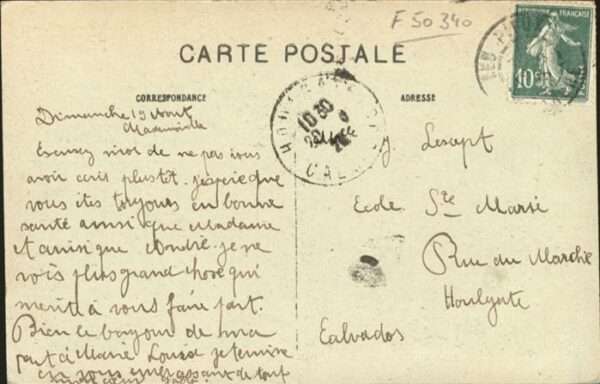 F 50340
RÉPUBLIQUE FRANÇAISE
10c
CARTE POSTALE
CORRESPONDANCE
ADRESSE
Dimanche 19 Août
Excusez moi de ne pas vous
avoir ecris plustot. j'espère que
vous êtes toujours en bonne
santé ainsi que Madame
et ainsi que André. je ne
vois plus grand chose qui
merite à vous faire part.
Bien le bonjour de ma
part à Marie Louise je termine
en vous embrassant de tout
10 30
CAL
Ecole Ste Marie
Rue du Marché
Houlgate
Calvados